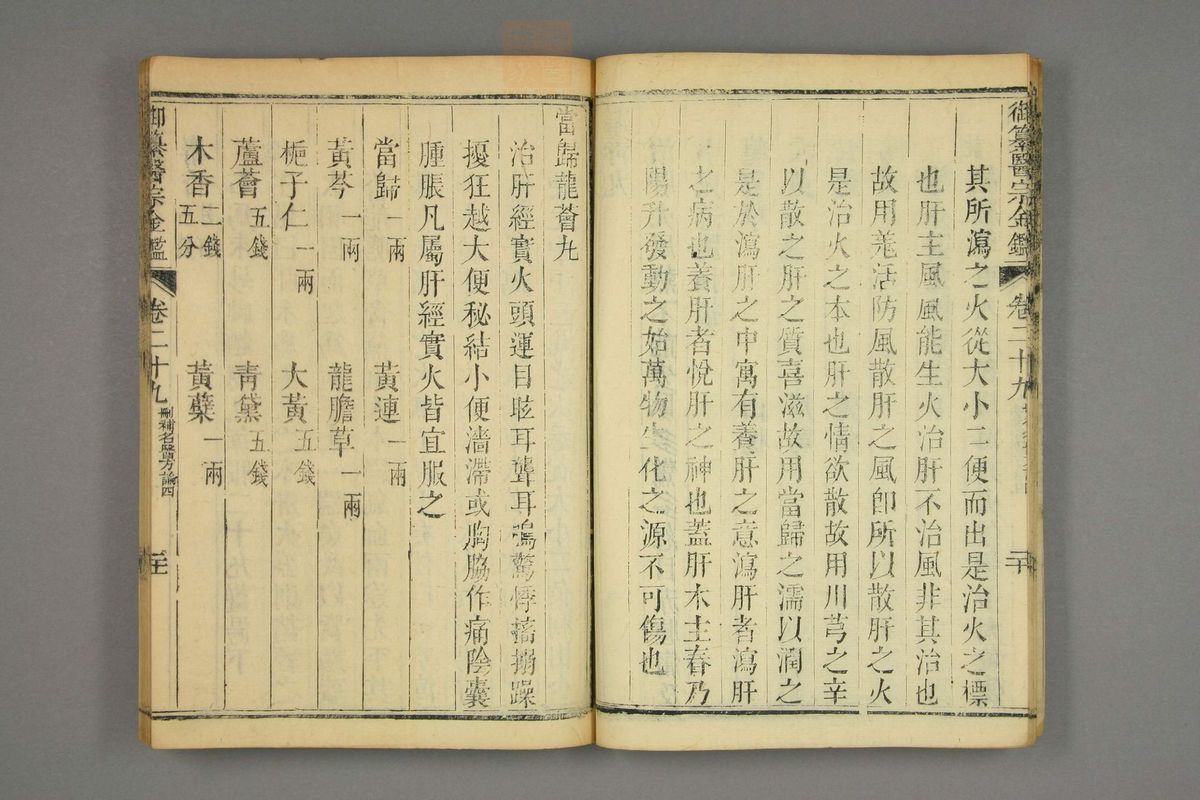 御纂醫宗金鑑 卷二十九
其所瀉之火從大小二便而出是治火之標
也肝主風風能生火治肝不治風非其治也
故用羗活防風散肝之風卽所以散肝之火
是治火之本也肝之情欲散故用川芎之辛
以散之肝之質喜滋故用當歸之濡以潤之
是於瀉肝之中寓有養肝之意瀉肝者瀉肝
之病也養肝者悅肝之神也蓋肝木主春乃
陽升發動之始萬物生化之源不可傷也
當歸龍薈丸
治肝經實火頭運目眩耳聾耳鳴驚悸搐搦躁
擾狂越大便秘結小便濇滯或胸脇作痛陰囊
腫脹凡屬肝經實火皆宜服之
當歸一兩 黃連一兩
黃芩一兩 龍膽草一兩
梔子仁一兩 大黃五錢
蘆薈五錢 青黛五錢
木香二錢五分 黃蘗一兩
御纂醫宗金鑑 卷二十九 刪補名醫方論四